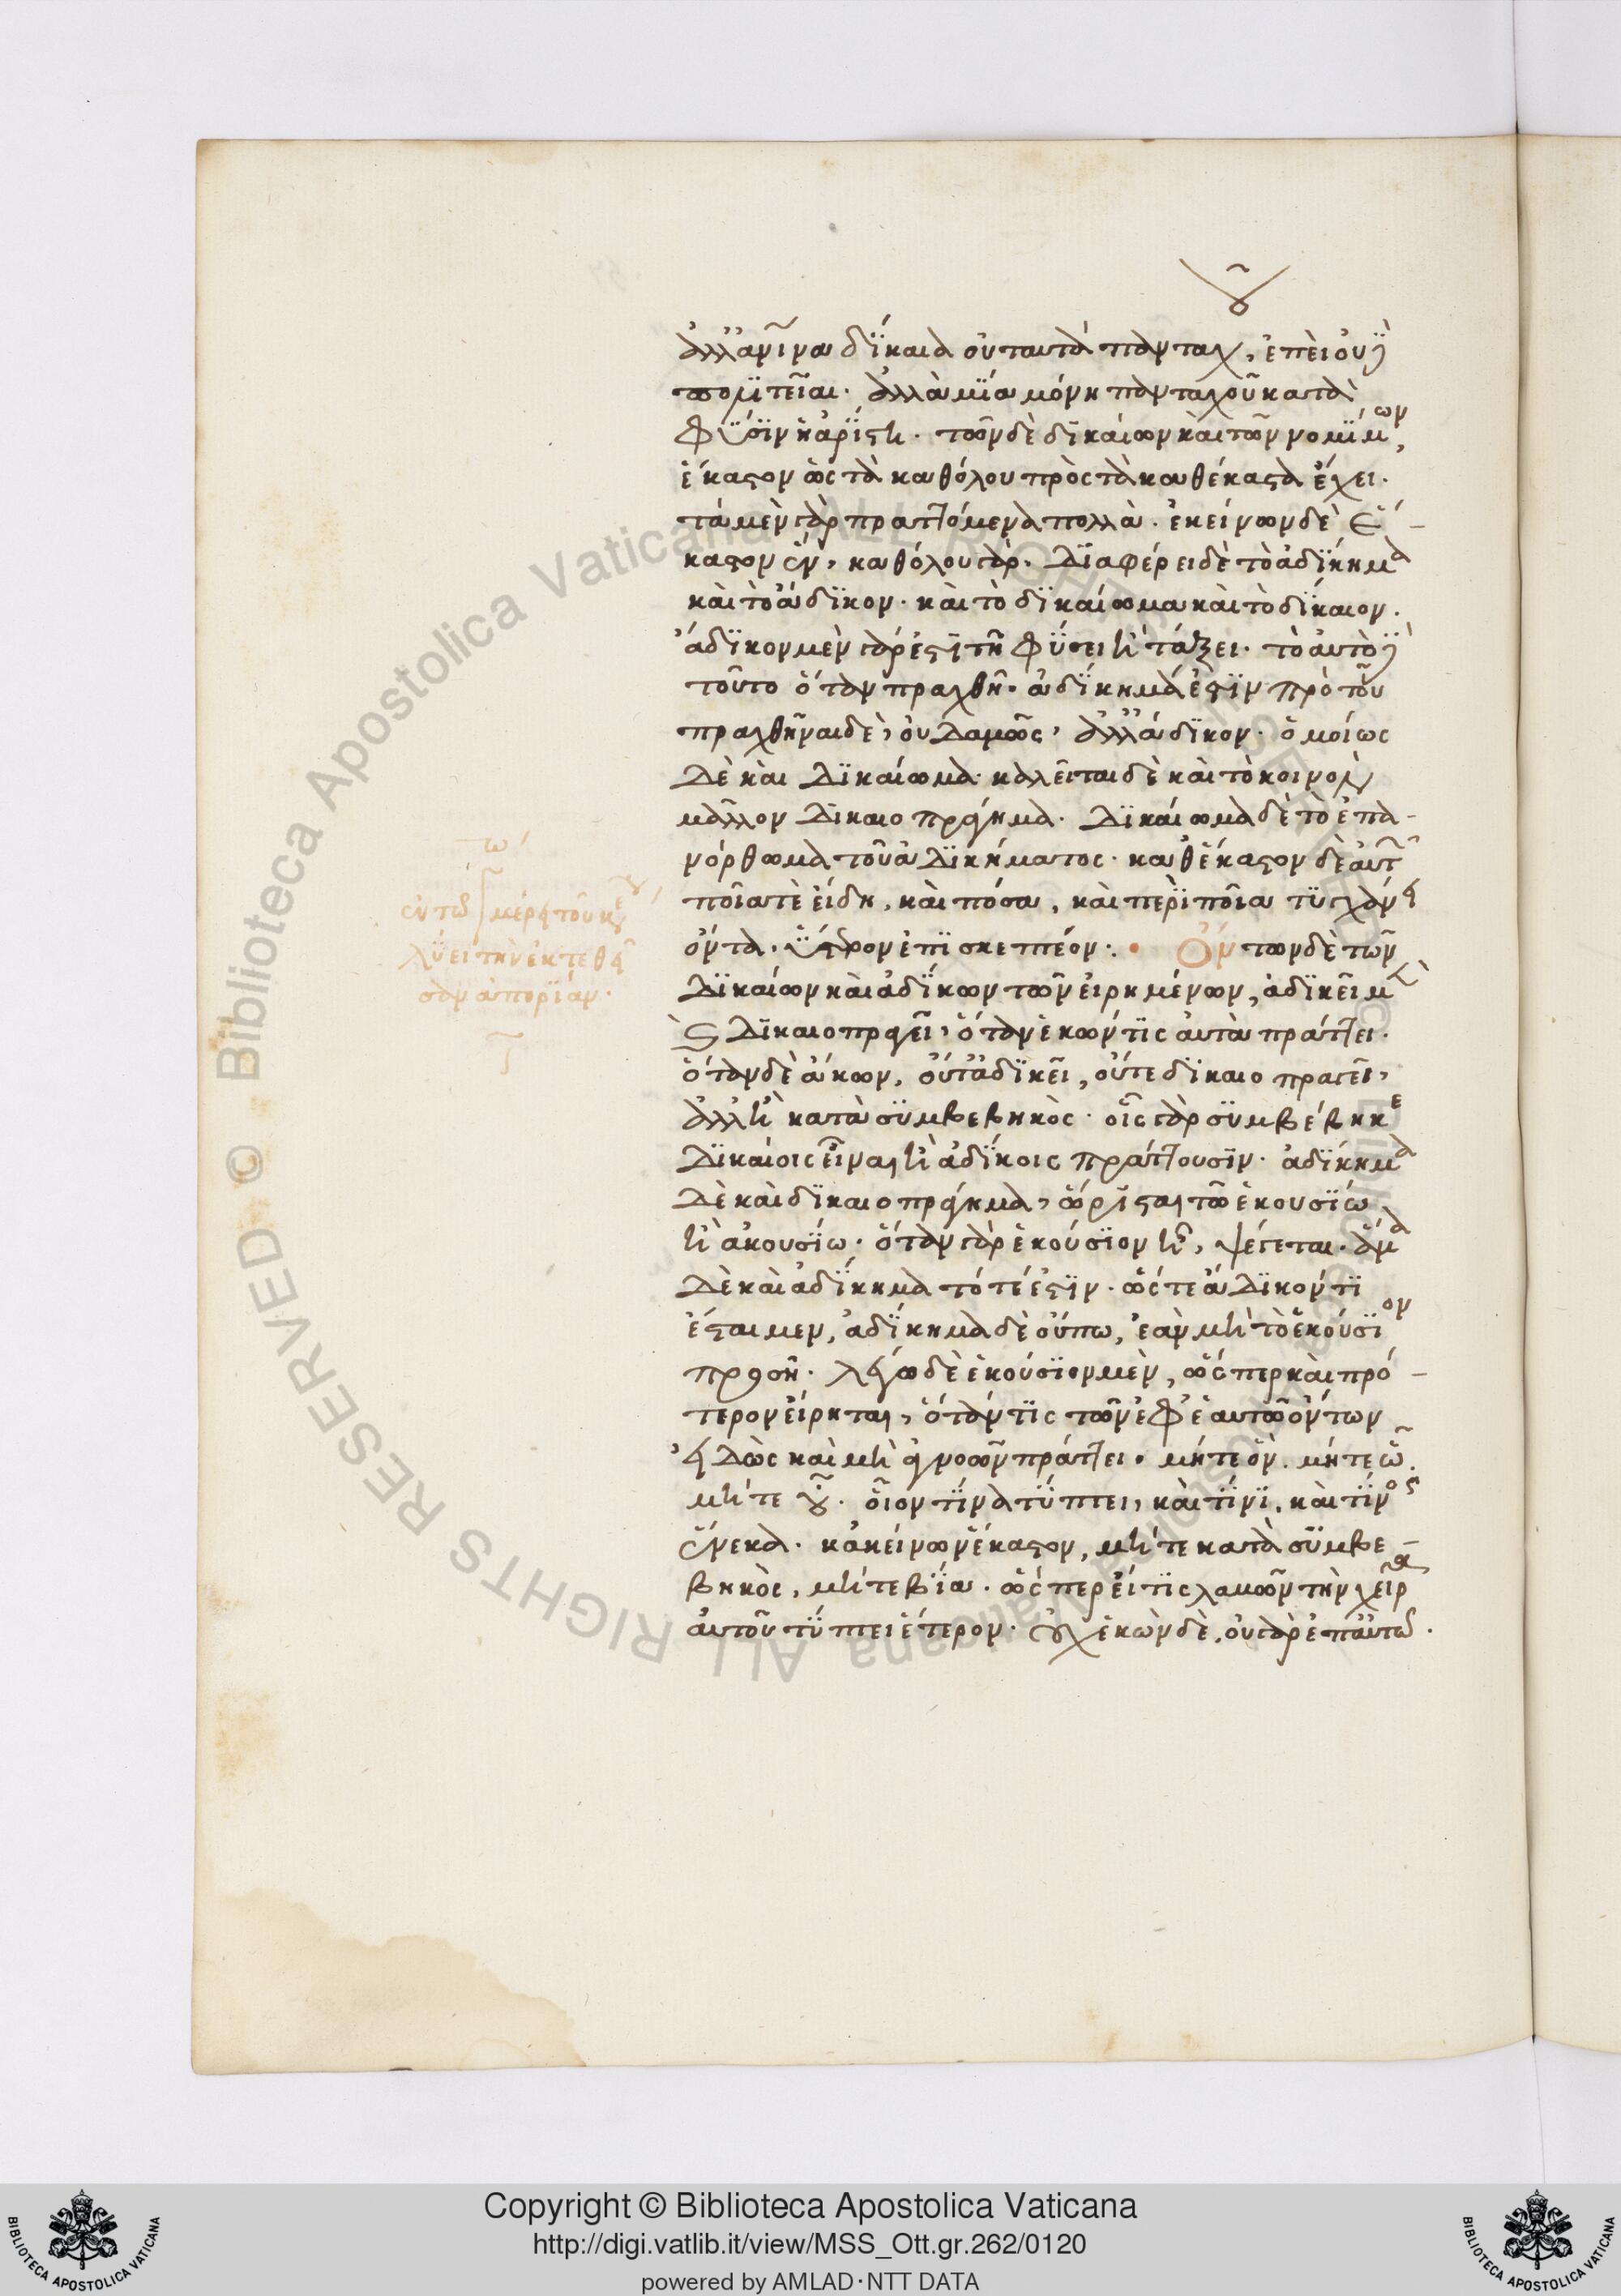 οὗ
ἀλλ' ἀνθρώπινα δίκαια οὐ ταυτὰ πανταχοῦ, ἐπεὶ οὐδὲ
πολιτεῖαι· ἀλλὰ μία μόνη πανταχοῦ κατὰ
φύσιν ἡ ἀρίστη· τῶν δὲ δικαίων καὶ τῶν νομίμων,
ἕκαστον ὡς τὰ καθόλου πρὸς τὰ καθέκαστα ἔχει·
τὰ μὲν γὰρ πραττόμενα πολλὰ· ἐκείνων δὲ ἕ-
καστον ἕν, καθόλου γὰρ· Διαφέρει δὲ τὸ ἀδίκημα
καὶ τὸ ἄδικον· καὶ τὸ δικαίωμα καὶ τὸ δίκαιον·
ἄδικον μὲν γάρ ἐστι τῆ φύσει ἢ τάξει· τὸ αὐτὸ δὲ
τοῦτο ὅταν πραχθῆ· ἀδίκημά ἐστιν πρὸ τοῦ
πραχθῆναι δὲ, οὐδαμῶς, ἀλλ' ἄδικον· ὁμοίως
δὲ καὶ δικαίωμα· καλεῖται δὲ καὶ τὸ κοινὸν
μᾶλλον δικαιοπράγημα· δικαίωμα δὲ τὸ ἐπα-
νόρθωμα τοῦ ἀδικήματος· καθέκαστον δὲ αὐτῶν
ποῖά τε εἴδη, καὶ πόσα, καὶ περὶ ποῖα τυγχάνει
ὄντα, ὕστερον ἐπισκεπτέον: · Ὄντων δὲ τῶν
δικαίων καὶ ἀδίκων τῶν εἰρημένων, ἀδικεῖ μὲν
καὶ δικαιοπραγεῖ, ὅταν ἑκών τις αὐτὰ πράττει·
ὅταν δὲ ἄκων, οὔτ' ἀδικεῖ, οὔτε δικαιοπραγεῖ,
ἀλλ' ἢ κατὰ συμβεβηκὸς· οἷς γὰρ συμβέβηκε
δικαίοις εἶναι ἢ ἀδίκοις πράττουσιν· ἀδίκημα
δὲ καὶ δικαιοπράγημα, ὥρισται τῶ ἑκουσίω
ἢ ἀκουσίω· ὅταν γὰρ ἑκούσιον ἦ, ψέγεται· ἅμα
δὲ καὶ ἀδίκημα τότέ ἐστιν· ὥστε ἄδικόν τι
ἔσται μεν, ἀδίκημα δὲ οὔπω, ἐὰν μὴ τὸ ἑκούσιον
προσῆ· λέγω δὲ ἑκούσιον μὲν, ὥσπερ καὶ πρό-
τερον εἴρηται, ὅταν τις τῶν ἐφ' ἑαυτῶ ὄντων
εἰδὼς καὶ μὴ ἀγνοῶν πράττει· μήτε ὃν· μήτε ὧ·
μήτε οὗ· οἷον τίνα τύπτει, καὶ τίνι, καὶ τίνος
ἕνεκα· κἀκείνων ἕκαστον, μήτε κατὰ συμβε-
βηκὸς, μήτε βία· ὥσπερ εἴ τις λαβὼν τὴν χεῖρα
αὐτοῦ τύπτει ἕτερον· οὐχ ἑκὼν δὲ, οὐ γὰρ ἐπ' αὐτῶ·
ἐν τῶ μέρει τούτω
λύει τὴν ἐκτεθεῖ
σαν ἀπορίαν·